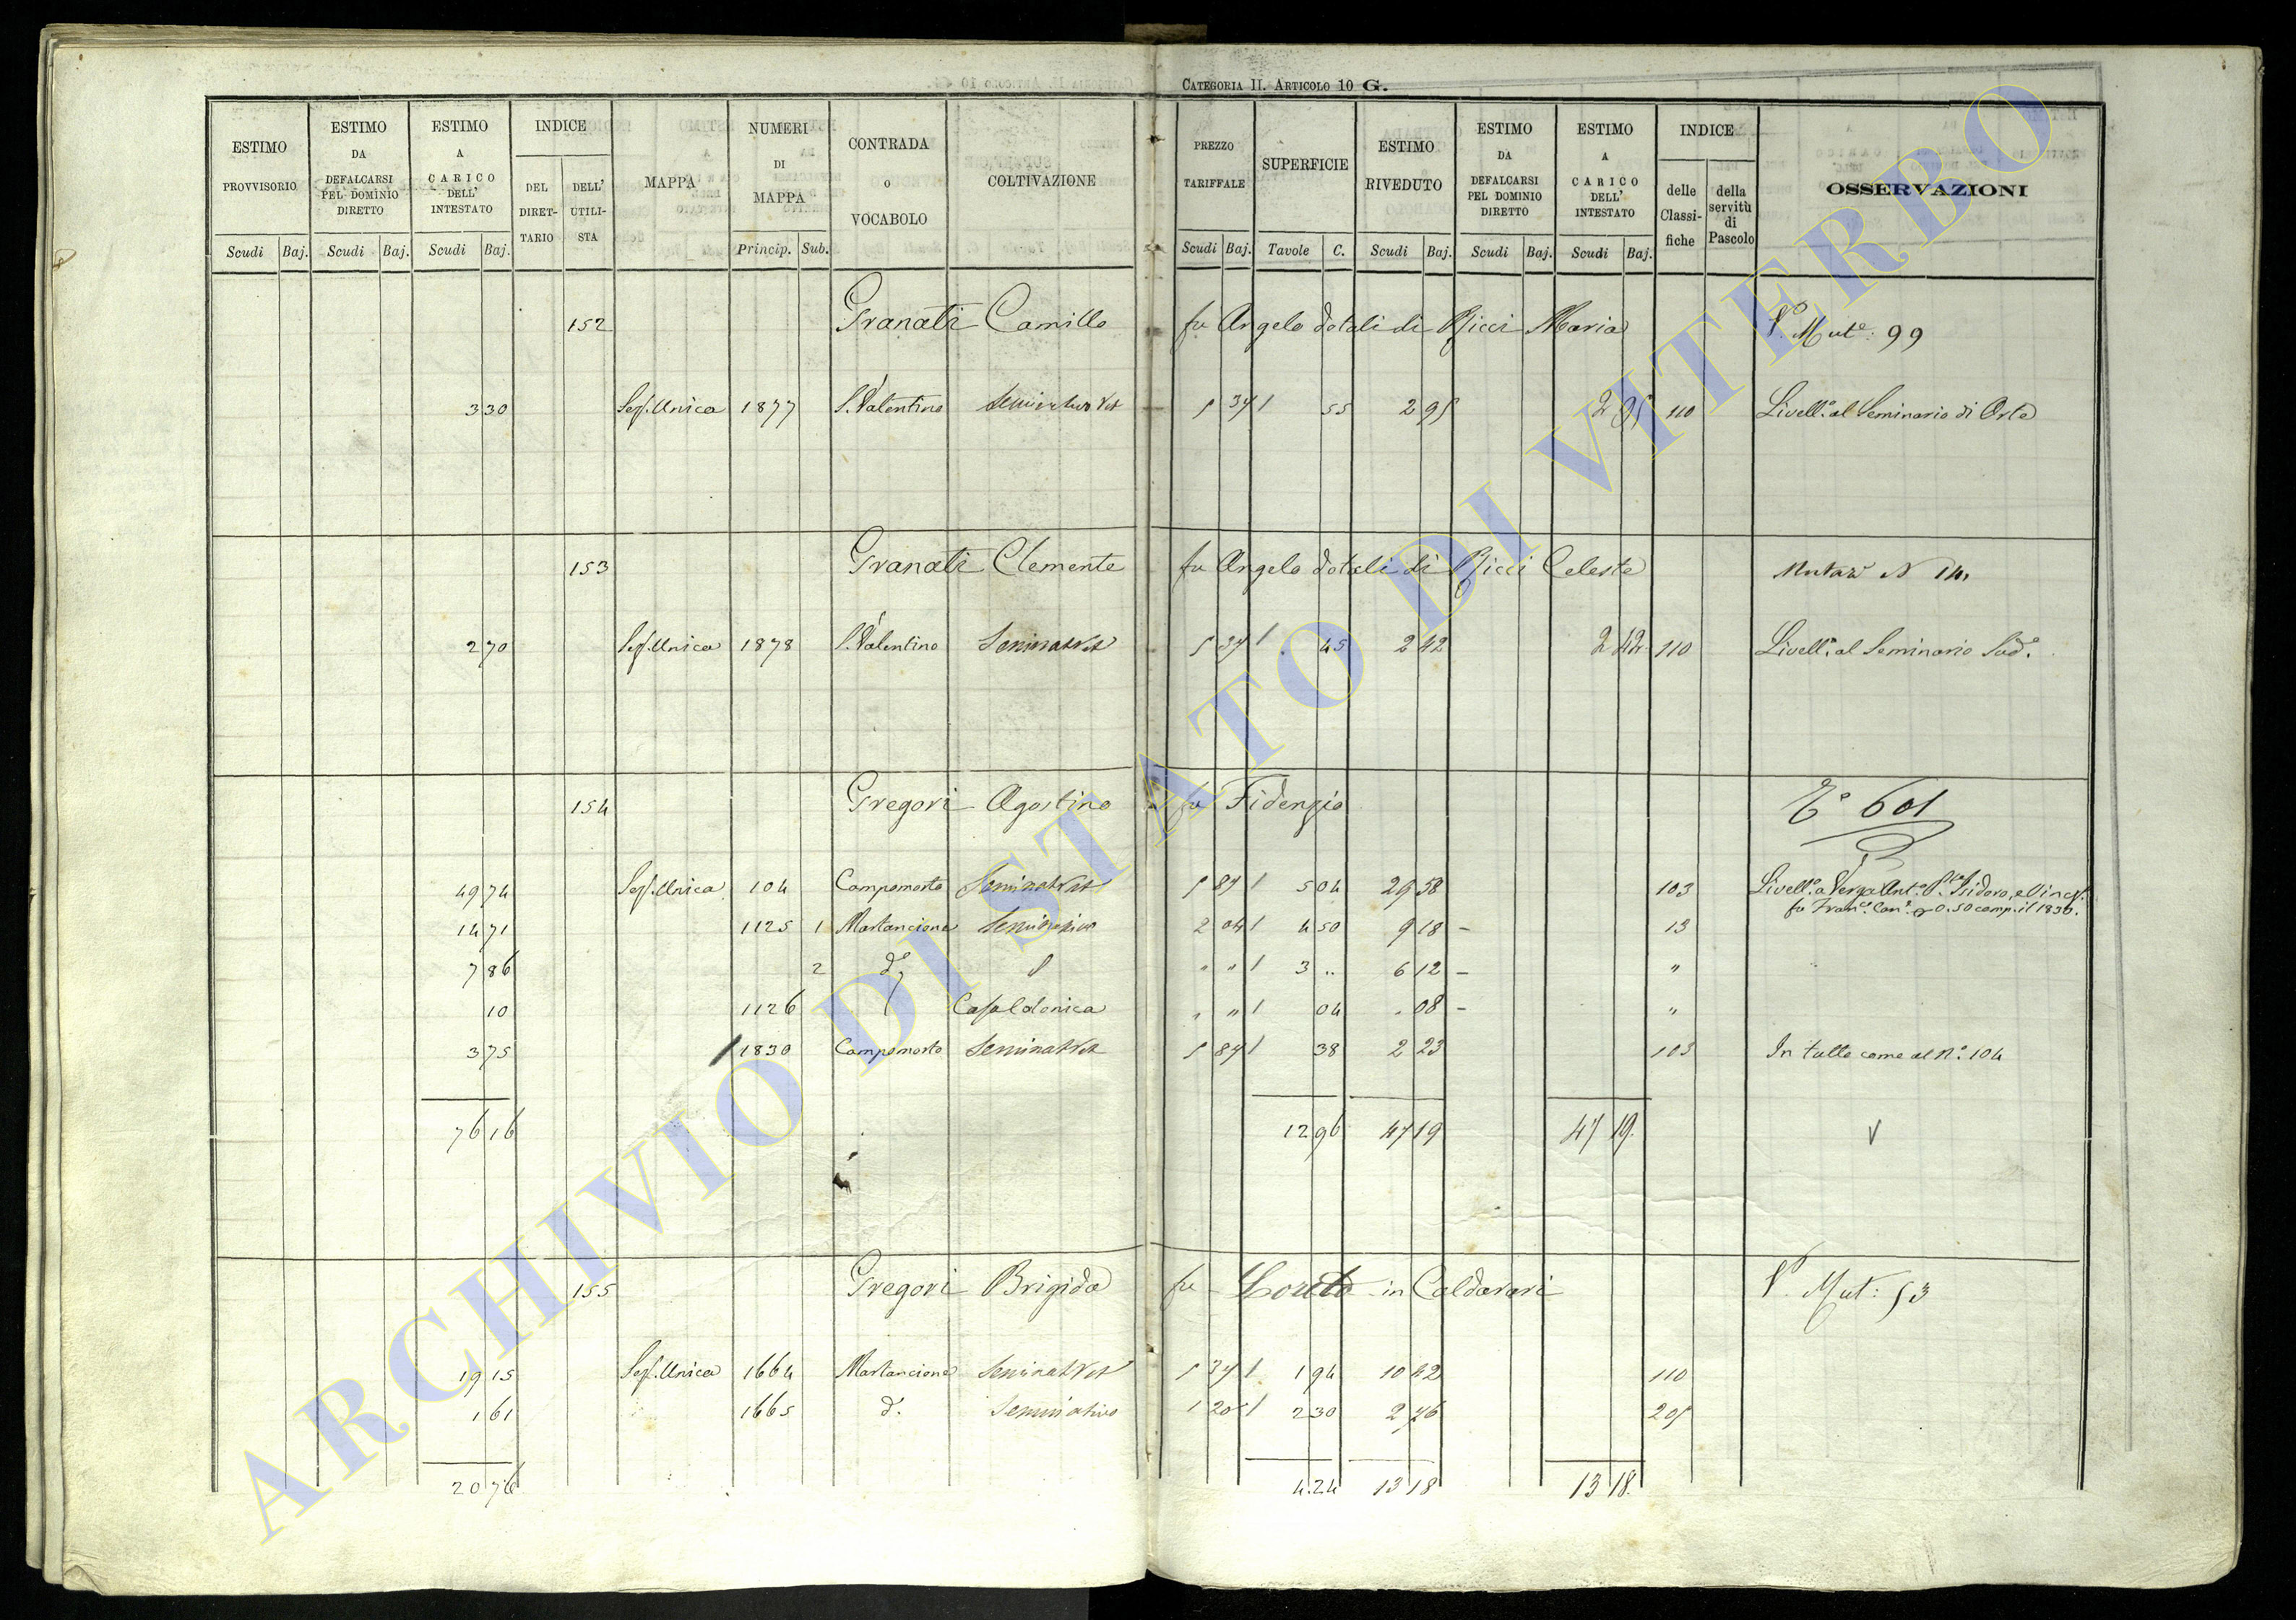 CATEGORIA II. ARTICOLO 10 G.
ESTIMO PROVVISORIO Scudi Baj.
ESTIMO DA DEFALCARSI PEL DOMINIO DIRETTO Scudi Baj.
ESTIMO A CARICO DELL' INTESTATO Scudi Baj.
INDICE DEL DIRET-TARIO DELL' UTILI-STA
MAPPA
NUMERI DI MAPPA Princip. Sub.
CONTRADA o VOCABOLO
COLTIVAZIONE
PREZZO TARIFFALE Scudi Baj.
SUPERFICIE Tavole C.
ESTIMO RIVEDUTO Scudi Baj.
ESTIMO DA DEFALCARSI PEL DOMINIO DIRETTO Scudi Baj.
ESTIMO A CARICO DELL' INTESTATO Scudi Baj.
INDICE delle Classi-fiche della servitù di Pascolo
OSSERVAZIONI
152 Granati Camillo fu Angelo dotali di Ricci Maria Vo Mute: 99
3 30 Sez. Unica 1877 S. Valentino Seminativo Vit 5 37 1 55 2 95 2 95 110 Livello al Seminario di Orte
153 Granati Clemente fu Angelo dotali di Ricci Celeste Mutaze N 14
2 70 Sez. Unica 1878 S. Valentino Seminat Vit 5 37 1 45 2 42 2 42 110 Livello al Seminario Sudo.
154 Gregori Agostino fu Fidenzio 601
49 74 Sez. Unica 104 Campomorto Seminat Vit 5 87 1 5 04 29 58 103 Livello a Verza Anto
fu Franco Cano 0.50 comp. il 1830.
14 71 1125 1 Martancione Seminativo 2 04 1 4 50 9 18 – 13
7 86 2 do " " 1 3 .. 6 12 – "
10 1126 Casa Colonica " " 1 04 . 08 – "
3 75 1830 Campomorto Seminat Vit 5 87 1 38 2 23 103 In tutto come al No. 104
76 16 12 96 47 19 47 19. V
155 Gregori Brigida fu Loreto in Caldarari Vo Mut: 53
19 15 Sez. Unica 1664 Martancione Seminat Vit 5 37 1 1 94 10 42 110
1 61 1665 do. Seminativo 1 20 1 2 30 2 76 205
20 76 4.24 13 18 13 18.
ARCHIVIO DI STATO DI VITERBO